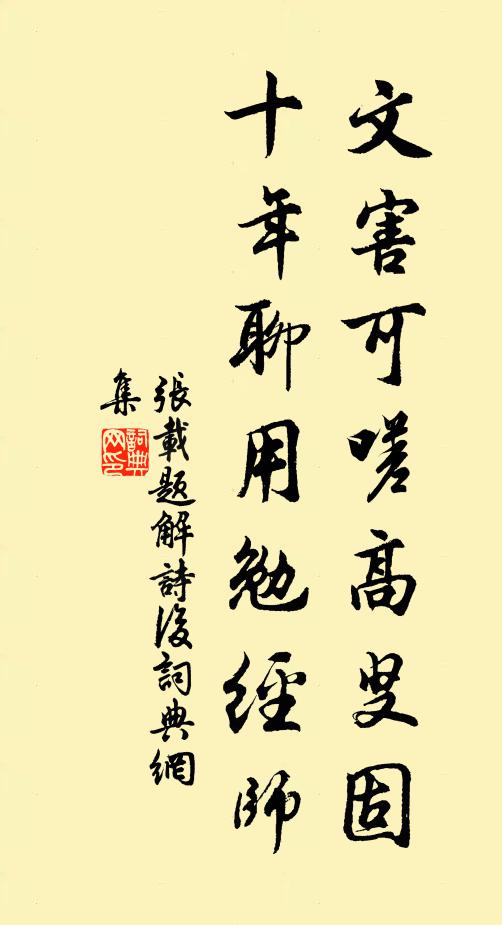 文害可嗟高叟固
十年聊用勉經師
張載題解詩後詞典網
集
詞典網印